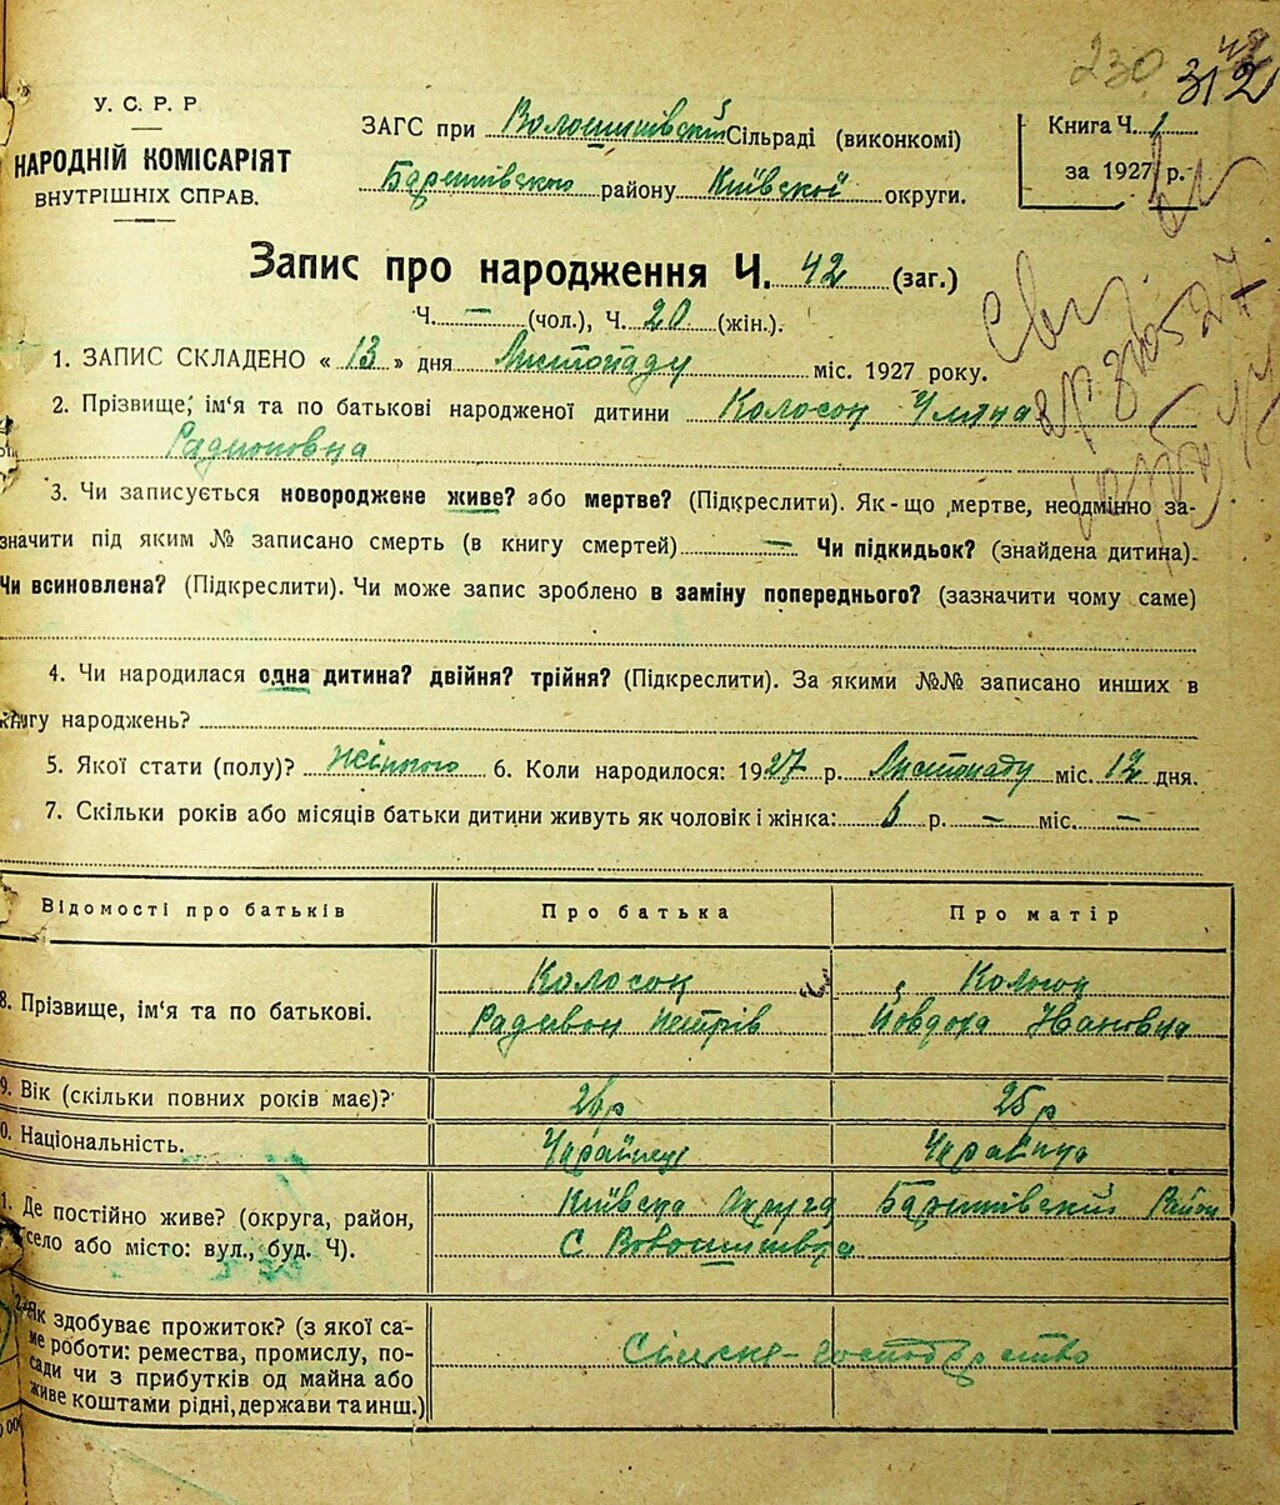 230 312
У. С. Р. Р
НАРОДНІЙ КОМІСАРІЯТ
ВНУТРІШНІХ СПРАВ.
ЗАГС при Волошинівській Сільраді (виконкомі)
Баришівского району Київской округи.
Книга Ч. 1
за 1927 р.
Запис про народження Ч. 42 (заг.)
Ч. — (чол.), Ч. 20 (жін.).
1. ЗАПИС СКЛАДЕНО « 13 » дня Листопаду міс. 1927 року.
2. Прізвище, ім'я та по батькові народженої дитини Колосок Уляна
Радионовна
3. Чи записується новороджене живе? або мертве? (Підкреслити). Як-що мертве, неодмінно за-
значити під яким № записано смерть (в книгу смертей) — Чи підкидьок? (знайдена дитина).
Чи всиновлена? (Підкреслити). Чи може запис зроблено в заміну попереднього? (зазначити чому саме)
4. Чи народилася одна дитина? двійня? трійня? (Підкреслити). За якими №№ записано инших в
книгу народжень?
5. Якої стати (полу)? жіночого 6. Коли народилося: 1927 р. Листопаду міс. 12 дня.
7. Скільки років або місяців батьки дитини живуть як чоловік і жінка: р. — міс. —
Відомості про батьків Про батька Про матір
8. Прізвище, ім'я та по батькові. Колосок Радивон Петрів Колосок Йовдоха Ивановна
9. Вік (скільки повних років має)? 25р
0. Національність. Українец Українка
1. Де постійно живе? (округа, район,
село або місто: вул., буд. Ч). Київска Округа Баришівский Район
С Волошинівка
2. Як здобуває прожиток? (з якої са-
ме роботи: ремества, промислу, по-
сади чи з прибутків од майна або
живе коштами рідні, держави та инш.) Сільске-господарство